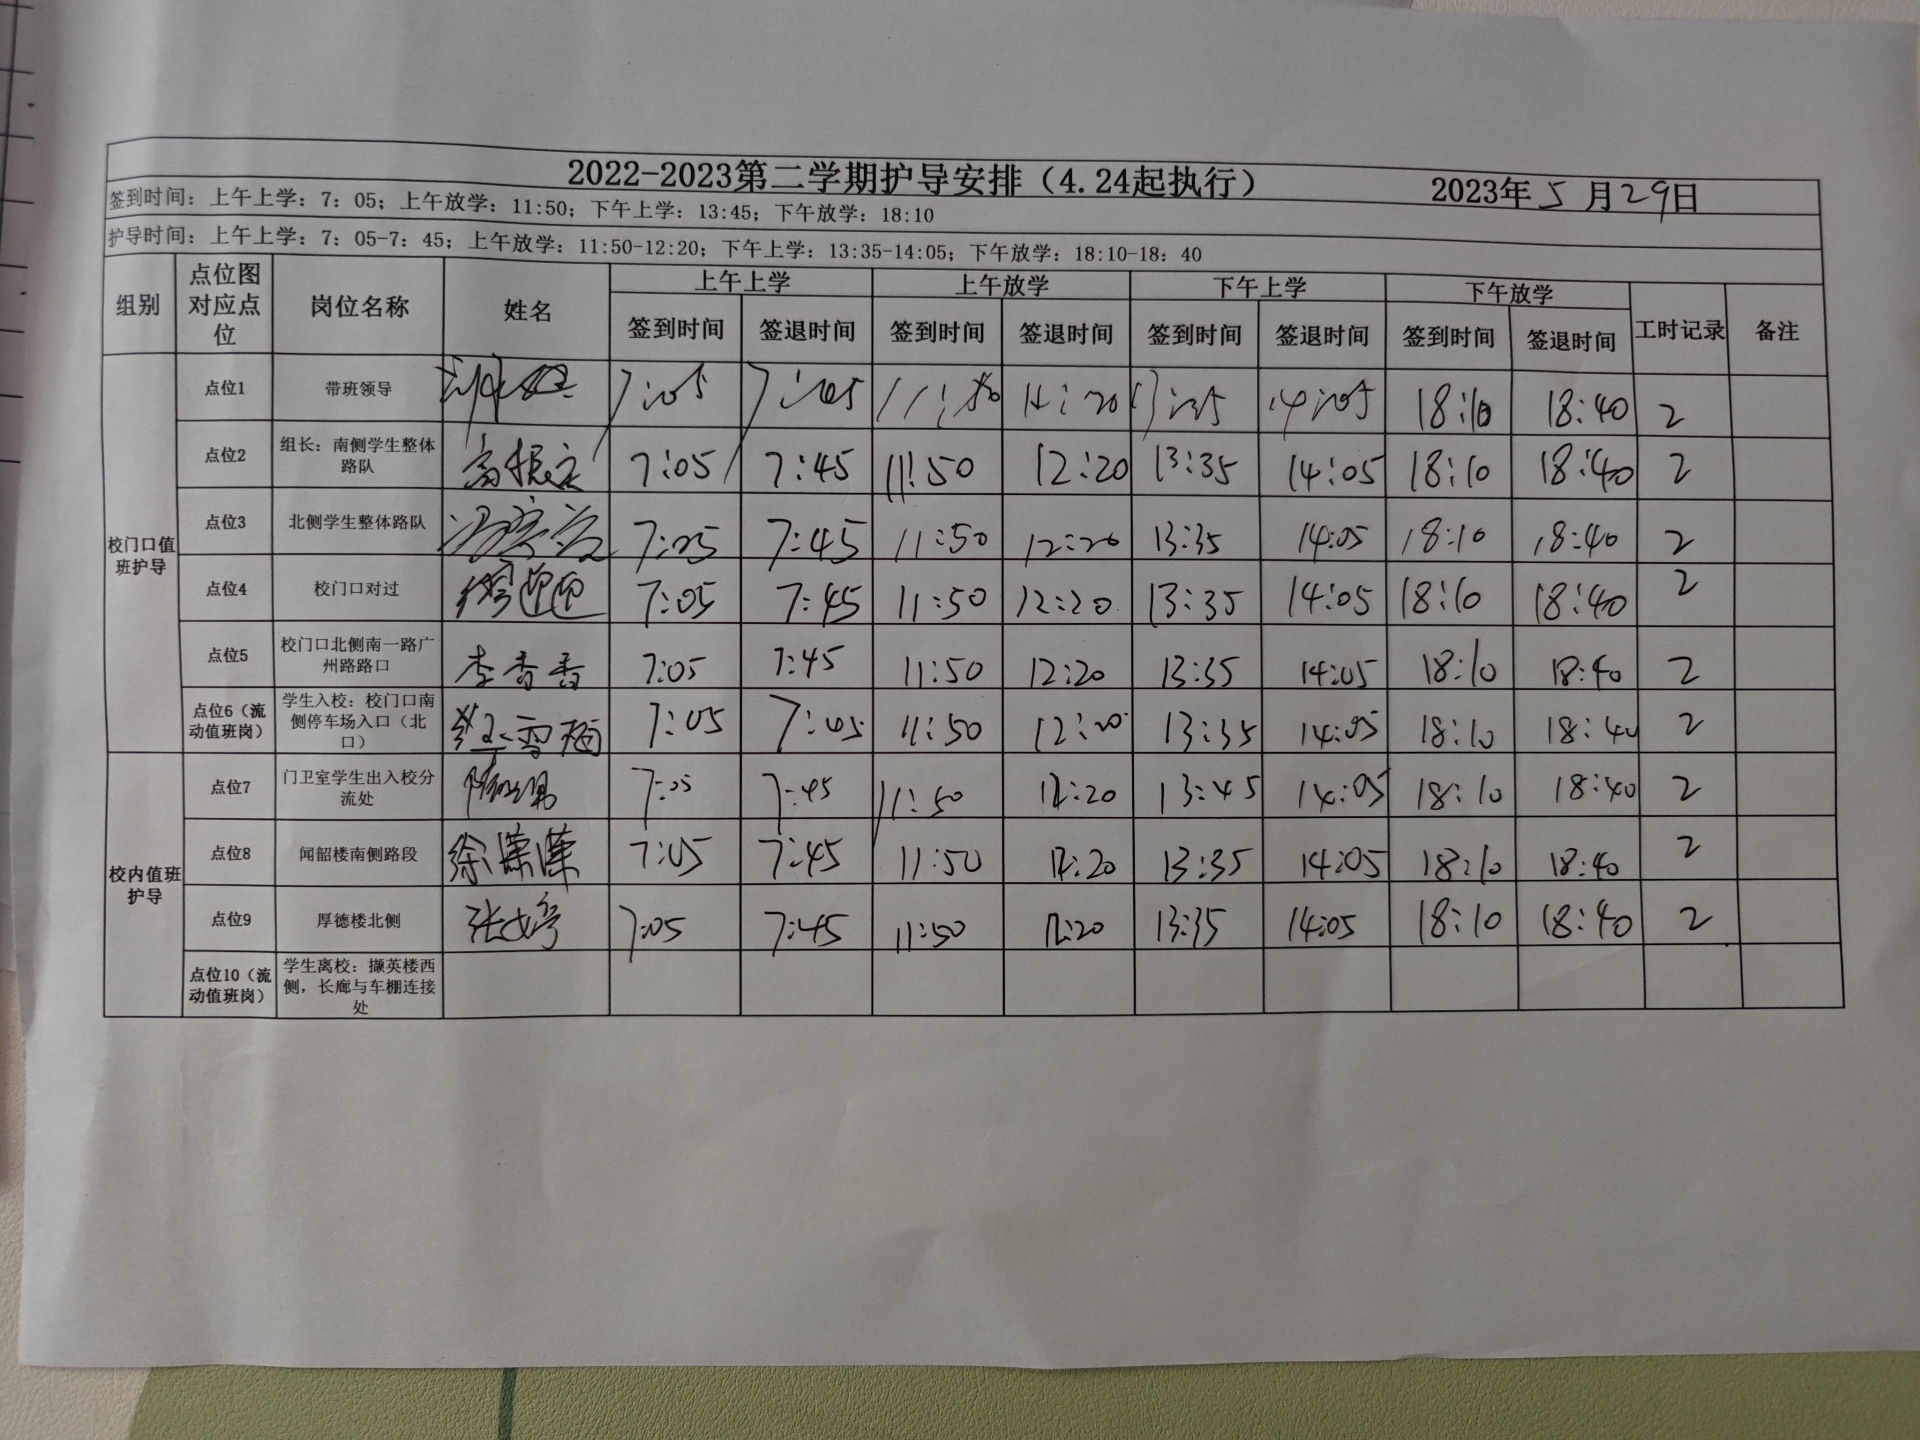 2022-2023第二学期护导安排（4.24起执行） 2023年5月29日
签到时间：上午上学：7：05；上午放学：11:50；下午上学：13:45；下午放学：18:10
护导时间：上午上学：7：05-7：45；上午放学：11:50-12:20；下午上学：13:35-14:05；下午放学：18:10-18：40
组别 点位图对应点位 岗位名称 姓名 上午上学 上午放学 下午上学 下午放学 工时记录 备注
签到时间 签退时间 签到时间 签退时间 签到时间 签退时间 签到时间 签退时间
校门口值班护导
点位1 带班领导 7:05 11:50 12:20 13:35 14:05 18:10 18:40 2
点位2 组长：南侧学生整体路队 高振立 7:05 7:45 11:50 12:20 13:35 14:05 18:10 18:40 2
点位3 北侧学生整体路队 7:05 7:45 11:50 12:20 13:35 14:05 18:10 18:40 2
点位4 校门口对过 7:05 7:45 11:50 12:20 13:35 14:05 18:10 18:40 2
点位5 校门口北侧南一路广州路路口 李香香 7:05 7:45 11:50 12:20 13:35 14:05 18:10 18:40 2
点位6（流动值班岗） 学生入校：校门口南侧停车场入口（北口） 7:05 7:05 11:50 12:20 13:35 14:05 18:10 18:40 2
校内值班护导
点位7 门卫室学生出入校分流处 7:05 7:45 11:50 12:20 13:45 14:05 18:10 18:40 2
点位8 闻韶楼南侧路段 徐潇潇 7:05 7:45 11:50 12:20 13:35 14:05 18:10 18:40 2
点位9 厚德楼北侧 张婷 7:05 7:45 11:50 12:20 13:35 14:05 18:10 18:40 2
点位10（流动值班岗） 学生离校：撷英楼西侧，长廊与车棚连接处